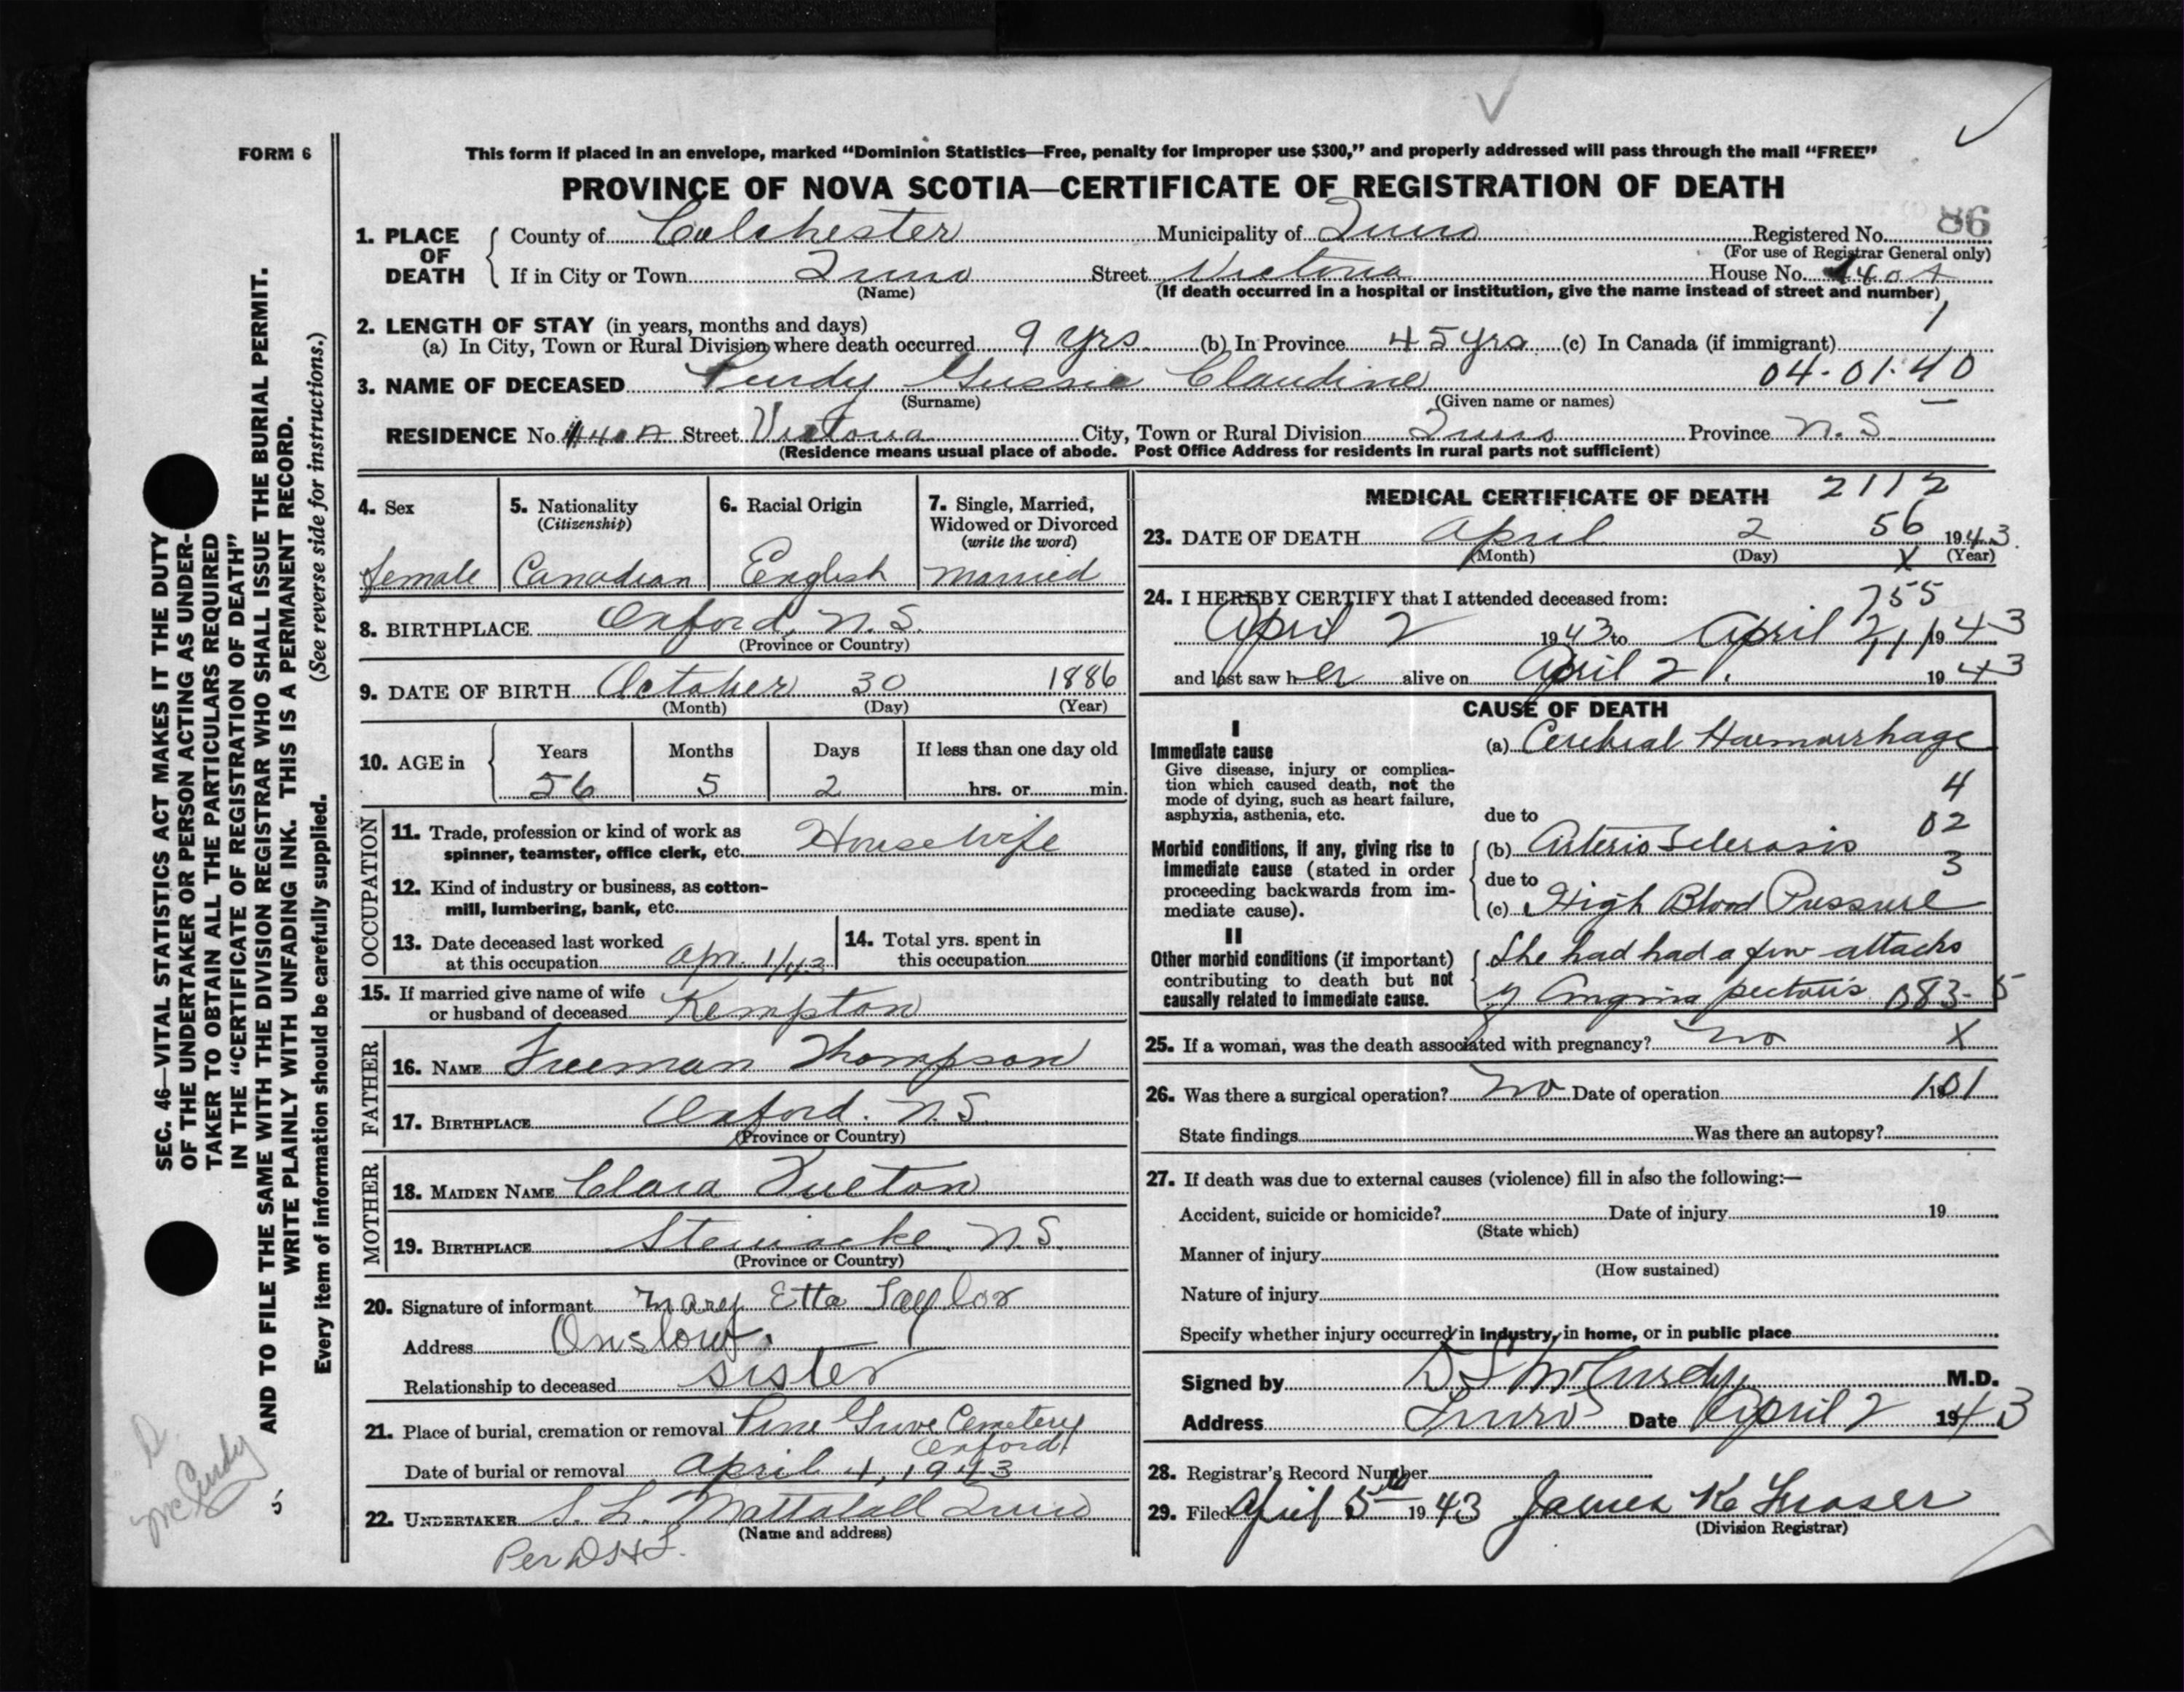 FORM 6
This form if placed in an envelope, marked “Dominion Statistics—Free, penalty for improper use $300,” and properly addressed will pass through the mail “FREE”
PROVINCE OF NOVA SCOTIA—CERTIFICATE OF REGISTRATION OF DEATH
86
1. PLACE OF DEATH { County of Colchester Municipality of Truro Registered No.
(For use of Registrar General only)
If in City or Town Truro Street Victoria House No. 140A
(Name) (If death occurred in a hospital or institution, give the name instead of street and number)
2. LENGTH OF STAY (in years, months and days)
(a) In City, Town or Rural Division where death occurred 9 yrs. (b) In Province 45 yrs. (c) In Canada (if immigrant)
3. NAME OF DECEASED Purdy Gussie Claudine 04-01-40
(Surname) (Given name or names)
RESIDENCE No. 140A Street Victoria City, Town or Rural Division Truro Province N.S.
(Residence means usual place of abode. Post Office Address for residents in rural parts not sufficient)
4. Sex 5. Nationality (Citizenship) 6. Racial Origin 7. Single, Married, Widowed or Divorced (write the word)
female Canadian English Married
8. BIRTHPLACE Oxford, N.S.
(Province or Country)
9. DATE OF BIRTH October 30 1886
(Month) (Day) (Year)
10. AGE in { Years Months Days If less than one day old
56 5 2 hrs. or min.
OCCUPATION
11. Trade, profession or kind of work as
spinner, teamster, office clerk, etc. Housewife
12. Kind of industry or business, as cotton-
mill, lumbering, bank, etc.
13. Date deceased last worked
at this occupation Apr. 1/43
14. Total yrs. spent in
this occupation
15. If married give name of wife
or husband of deceased Kempton
FATHER
16. NAME Freeman Thompson
17. BIRTHPLACE Oxford. N.S.
(Province or Country)
MOTHER
18. MAIDEN NAME Clara Fulton
19. BIRTHPLACE Stewiacke N.S.
(Province or Country)
20. Signature of informant Mary Etta Taylor
Address Onslow.
Relationship to deceased sister
21. Place of burial, cremation or removal Pine Grove Cemetery
Oxford
Date of burial or removal April 4, 1943
22. UNDERTAKER S. L. Mattatall Truro
(Name and address)
MEDICAL CERTIFICATE OF DEATH 2112
23. DATE OF DEATH April 2 56 1943.
(Month) (Day) X (Year)
24. I HEREBY CERTIFY that I attended deceased from: 755
April 2 1943 to April 2, 1943
and last saw her alive on April 2. 1943
CAUSE OF DEATH
I
Immediate cause (a) Cerebral Haemorrhage
Give disease, injury or complica-
tion which caused death, not the
mode of dying, such as heart failure,
asphyxia, asthenia, etc.
4
due to 02
Morbid conditions, if any, giving rise to
immediate cause (stated in order
proceeding backwards from im-
mediate cause).
(b) Arterio Sclerosis
due to 3
(c) High Blood Pressure
II
Other morbid conditions (if important)
contributing to death but not
causally related to immediate cause.
She had had a few attacks
of Angina pectoris 083-5
25. If a woman, was the death associated with pregnancy? no X
26. Was there a surgical operation? No Date of operation 101
State findings Was there an autopsy?
27. If death was due to external causes (violence) fill in also the following:—
Accident, suicide or homicide? Date of injury 19
(State which)
Manner of injury
(How sustained)
Nature of injury
Specify whether injury occurred in industry, in home, or in public place
Signed by D S McCurdy M.D.
Address Truro Date April 2 1943
28. Registrar's Record Number
29. Filed April 5th 1943 James K. Fraser
(Division Registrar)
SEC. 46—VITAL STATISTICS ACT MAKES IT THE DUTY
OF THE UNDERTAKER OR PERSON ACTING AS UNDER-
TAKER TO OBTAIN ALL THE PARTICULARS REQUIRED
IN THE “CERTIFICATE OF REGISTRATION OF DEATH”
AND TO FILE THE SAME WITH THE DIVISION REGISTRAR WHO SHALL ISSUE THE BURIAL PERMIT.
WRITE PLAINLY WITH UNFADING INK. THIS IS A PERMANENT RECORD.
Every item of information should be carefully supplied. (See reverse side for instructions.)
D. McCurdy
5